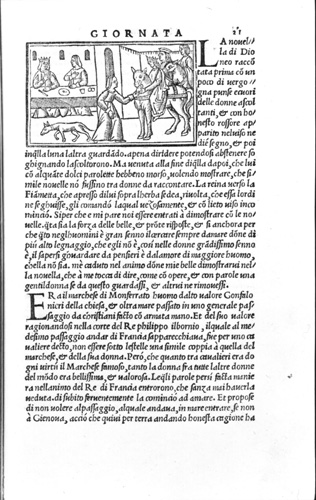 GIORNATA 21
LA nouel
la di Dio
neo raccõ
tata prima cõ un
poco di uergo
gna punse ecuori
delle donne ascol
tanti, & con ho
nesto rossore ap
parito neluiso ne
diè segno, & poi
inqlla luna laltra guardãdo. apena diridere potendosi abstener so
ghignando lascoltorono. Ma uenuta alla fine diqlla dapoi, che lui
cõ alquãte dolci parolette hebbeno morso, uolendo mostrare, che si
mile nouelle nõ fussino tra donne da raccontare. La reina uerso la
Fiãmetta, che apresso dilui sopralherba sedea, riuolta, che essa lordi
ne seguisse, gli comando laqual uezosamente, & cõ lieto uiso inco
mincio. Siper che e mi pare noi essere entrati a dimostrare cõ le no
uelle, quãta sia la forza delle belle, & prõte risposte, & si anchora per
che quãto neglhuomini è gran senno il cercare sempre damare dõne di
piu alto legnaggio, che egli nõ è, cosi nelle donne grãdissimo senno
è, il sapersi guardare da pensieri è dalamore di maggiore huomo,
chella nõ sia. mè caduto nel animo dõne mie belle dimostrarui nel
la nouella, che a me tocca di dire, come & opere, & con parole una
gentildonna se da questo guardassi, & altrui ne rimouessi.
ERa il marchese di Monferrato huomo dalto ualore Confalo
nieri della chiesa, & oltra mare passato in uno generale pas
saggio da christiani fatto cõ armata mano. Et del suo ualore
ragionandosi nella corte del Re philippo ilbornio, ilquale al me
desimo passaggio andar di Francia sapparecchiaua, fue per uno ca
ualiere detto, non essere sotto lestelle una simile coppia a quella del
marchese, & della sua donna. Però, che quanto tra caualieri era do
gni uirtù il Marchese famoso, tanto la donna fra tutte laltre donne
del mõdo era bellissima, & ualorosa. Leqli parole persi fatta manie
ra nellanimo del Re di Francia entrorono, che sanza mai hauerla
ueduta, di subito feruentemente la comincio ad amare. Et propose
di non uolere alpassaggio, alquale andaua, in mare entrare, se non
a Gienoua, acciò che quiui per terra andando honesta cagione ha